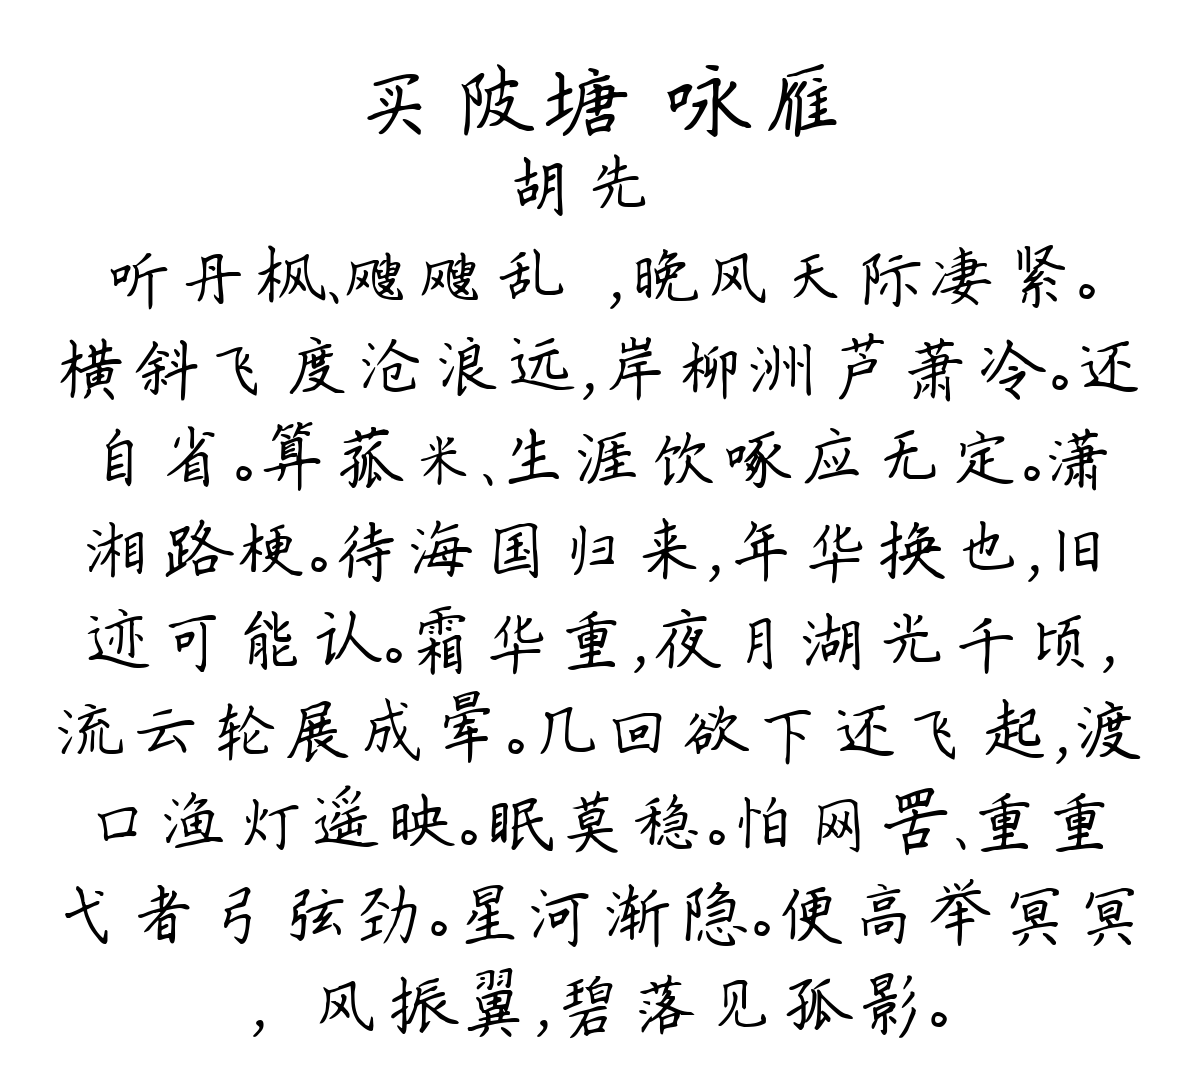 买陂塘 咏雁
胡先
听丹枫、飕飕乱 ,晚风天际凄紧。
横斜飞度沧浪远,岸柳洲芦萧冷。还
自省。算菰米、生涯饮啄应无定。潇
湘路梗。待海国归来,年华换也,旧
迹可能认。霜华重,夜月湖光千顷,
流云轮展成晕。几回欲下还飞起,渡
口渔灯遥映。眠莫稳。怕网罟、重重
弋者弓弦劲。星河渐隐。便高举冥冥
，风振翼,碧落见孤影。